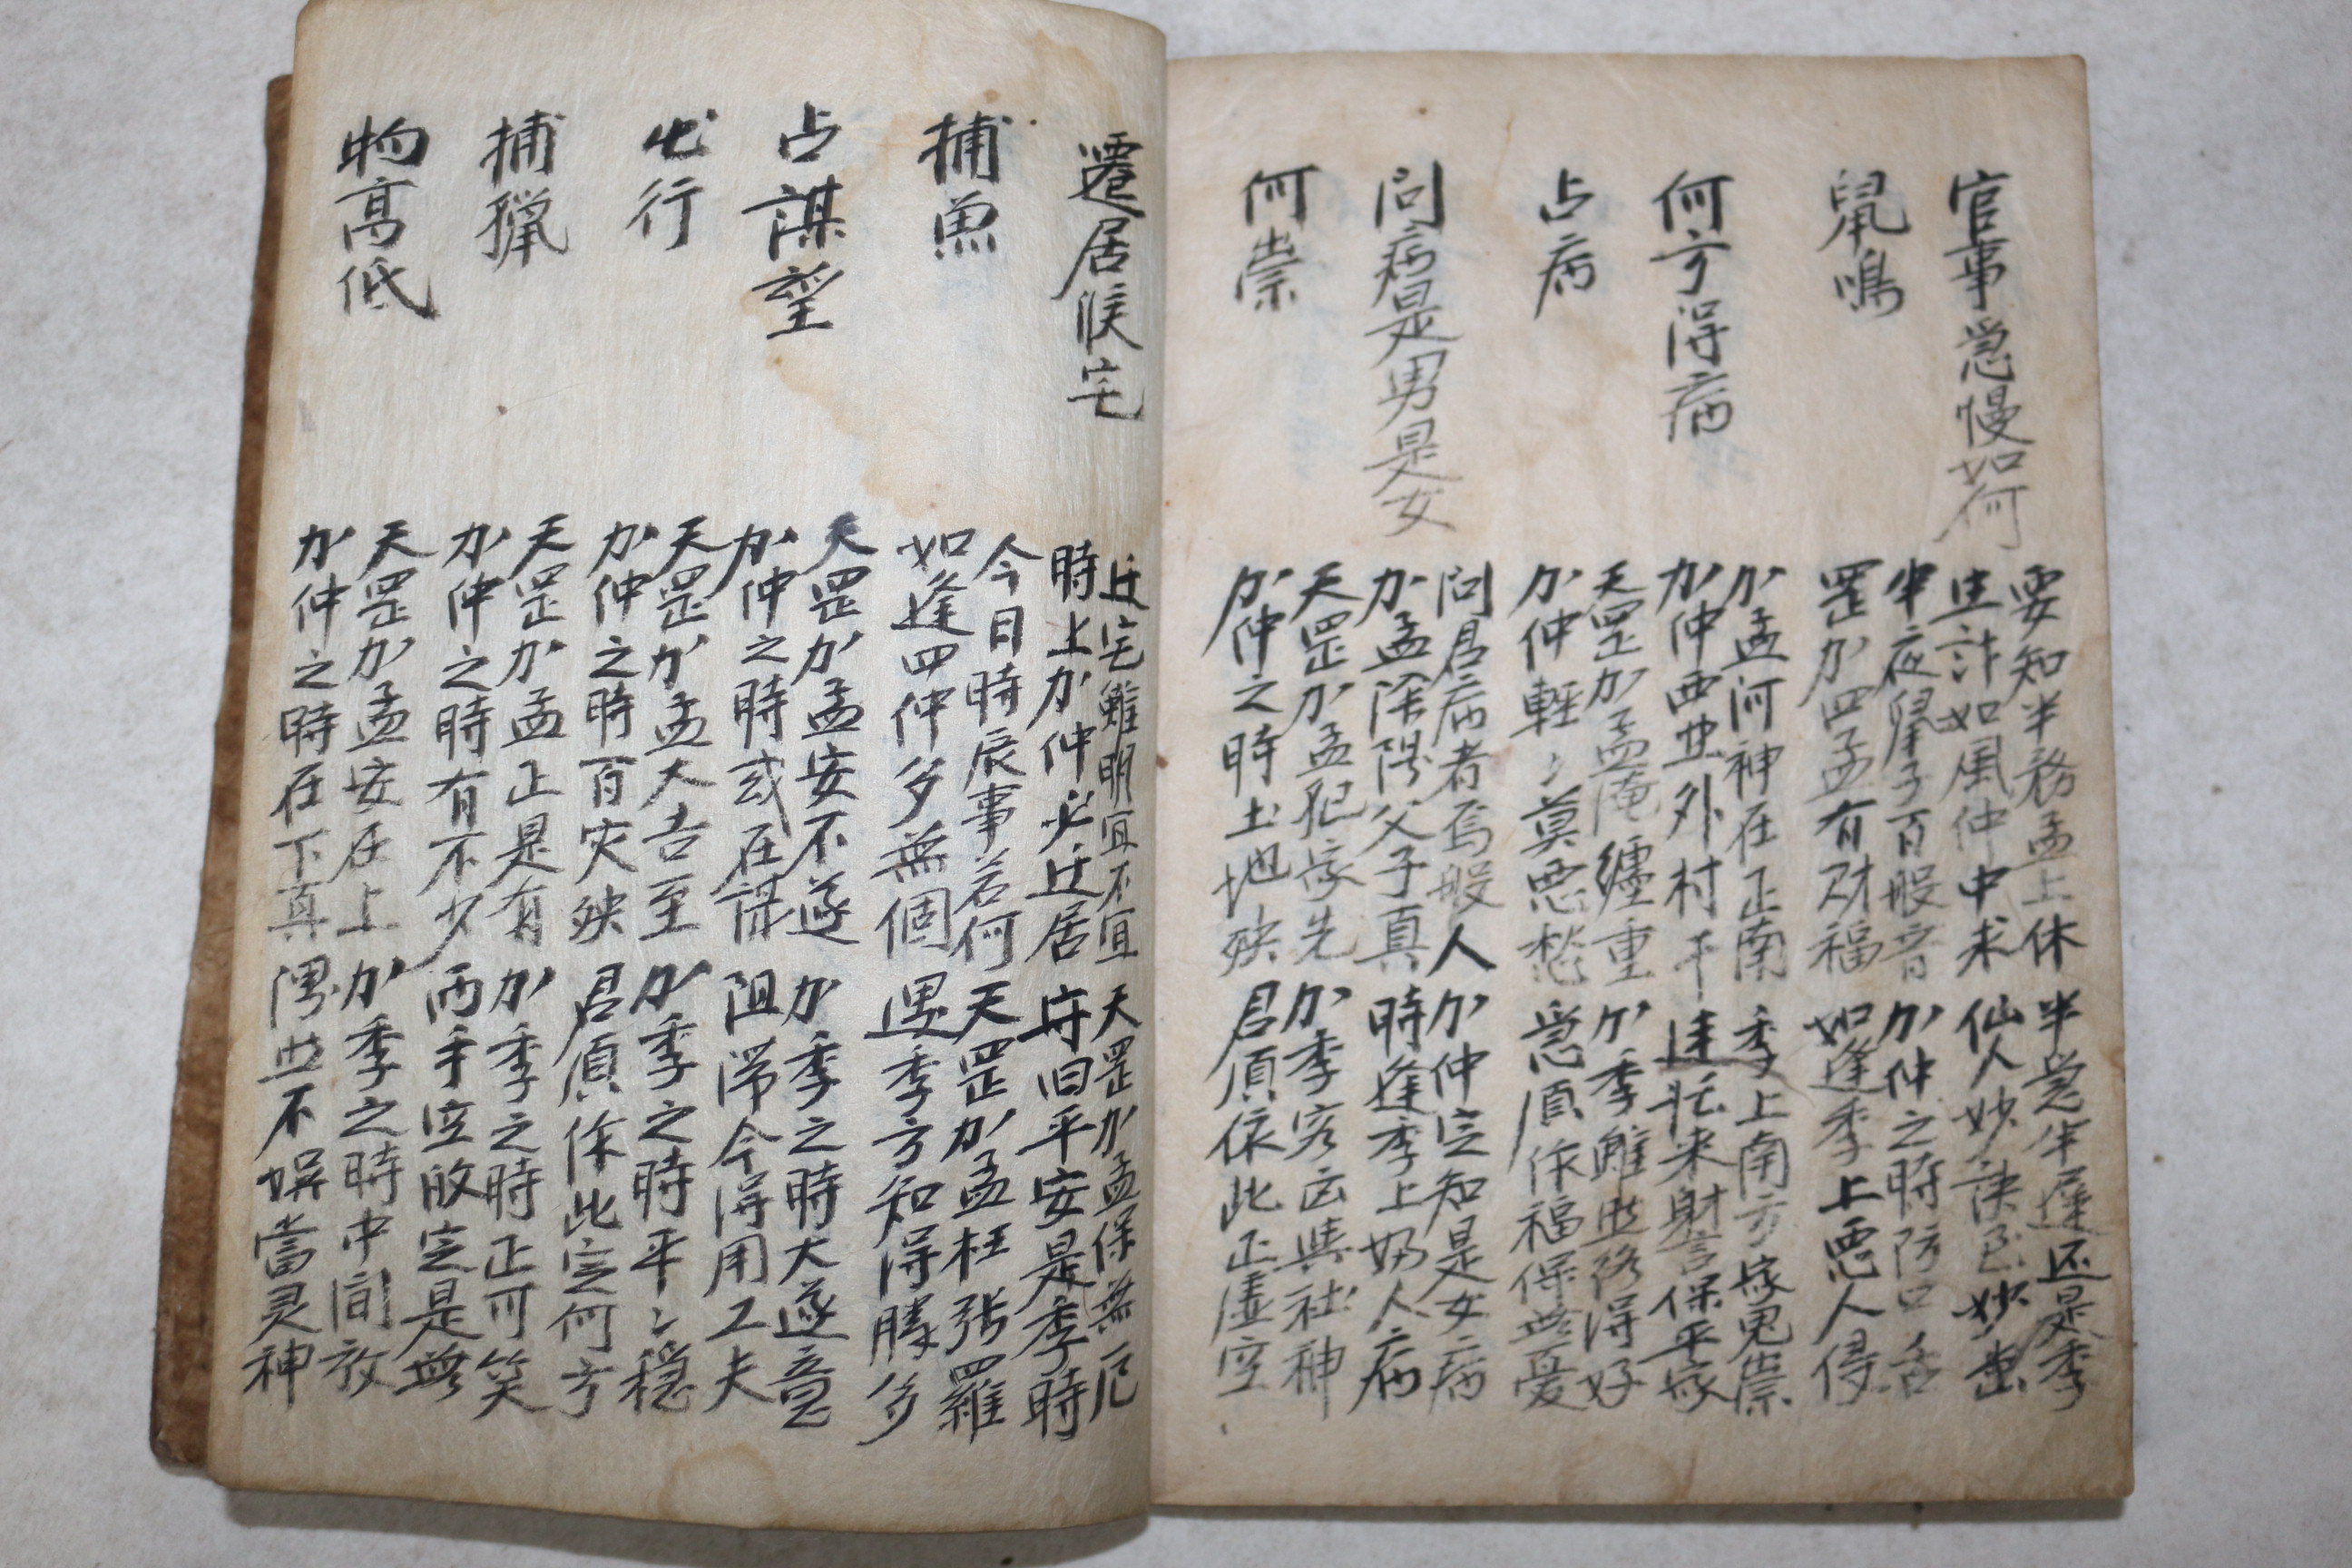 官事急慢如何
要知半務孟上休 半急半遲还是季
生計如風仲中求 仙人妙訣已妙出
鼠鳴
半夜鼠子百般音 加仲之時防口舌
罡加四孟有財福 如逢季上惡人侵
何方得病
加孟河神在正南 季上南方塚鬼祟
加仲西 外村 来財言保平塚
占病
天罡加孟淹纏重 加季雖然終得好
加仲輕〻莫悪愁 急須作福保無憂
問病是男是女
問君病者爲般人 加仲定知是女病
加孟陰陽父子真 時逢季上婦人病
何祟
天罡加孟犯塚先 加季客亡與社神
加仲之時土地殃 君須依此正虛空
遷居候宅
迁宅難明宜不宜 天罡加孟保無厄
時上加仲必迁居 守旧平安是季時
捕魚
今日時辰事若何 天罡加孟枉張羅
如逢四仲多無個 遇季方知得勝多
占謀望
天罡加孟安不遂 加季之時大遂意
加仲之時或在謀 阻滯今得用工夫
出行
天罡加孟大吉至 加季之時平〻穏
加仲之時百灾殃 君須依此定何方
捕獵
天罡加孟正是有 加季之時正可笑
加仲之時有不少 両手空放定是無
物高低
天罡加孟安在上 加季之時中间放
加仲之時在下真 偶然不娯當灵神